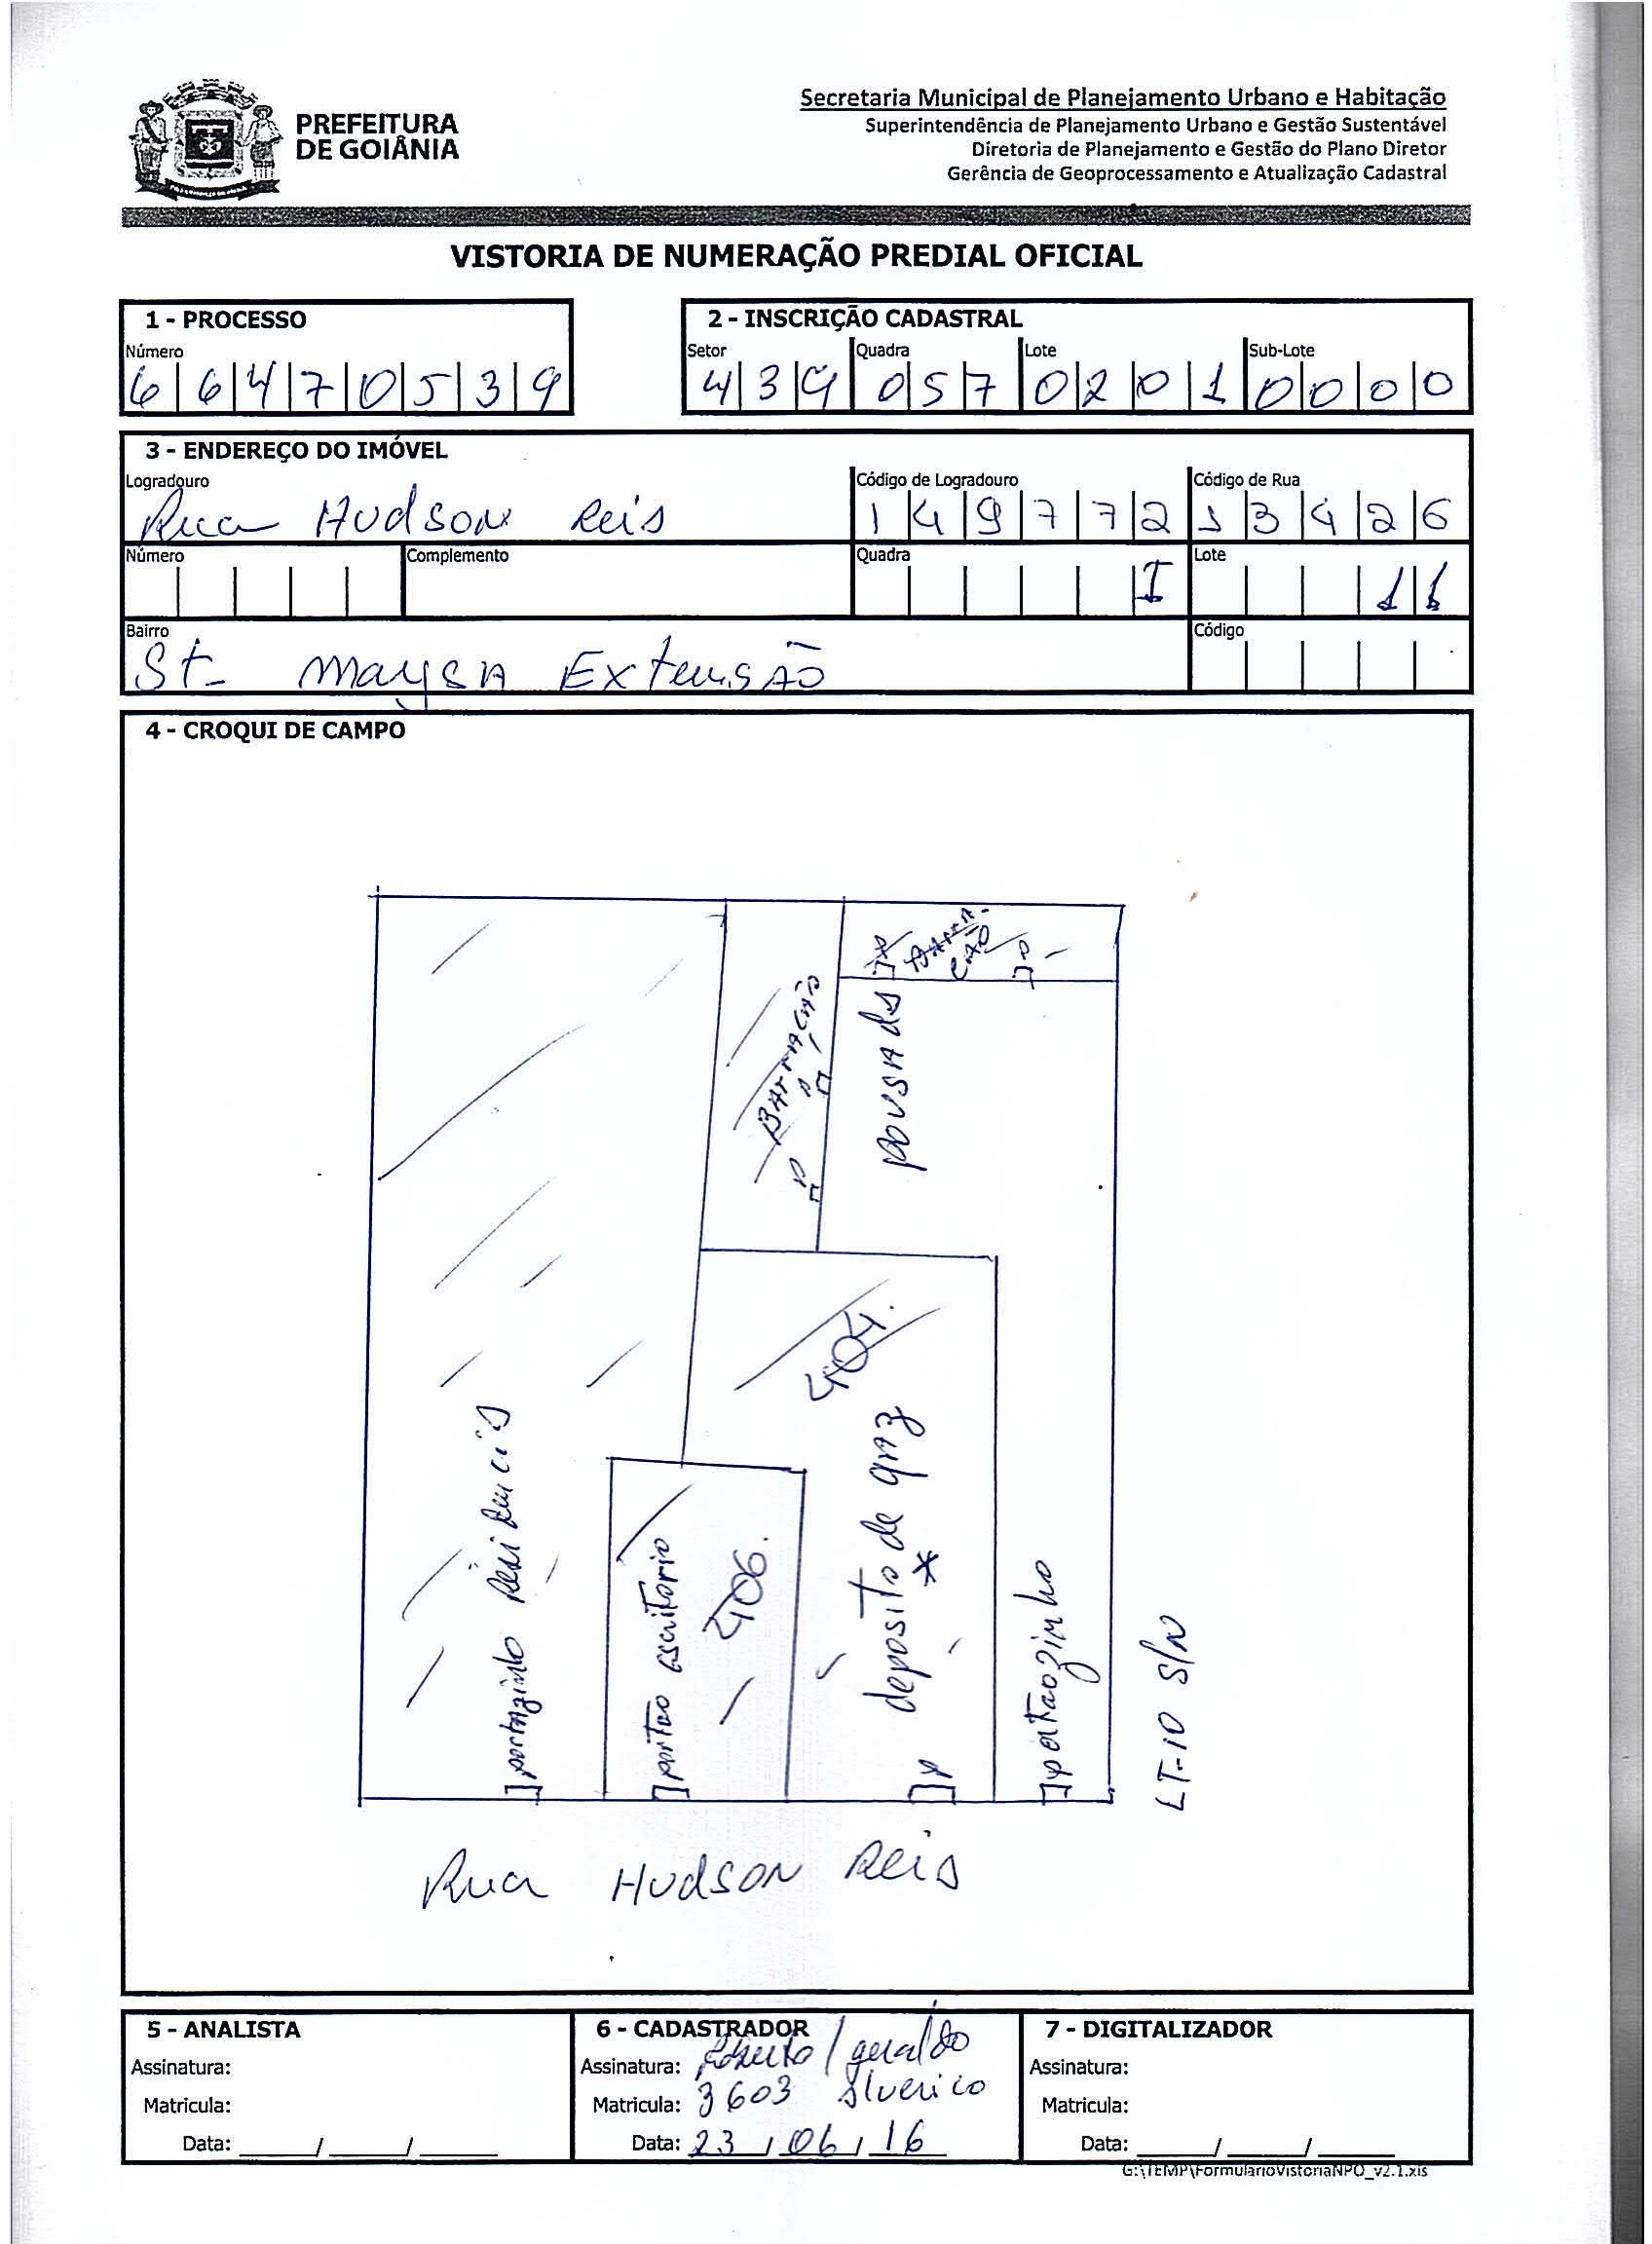 PREFEITURA
DE GOIÂNIA
Secretaria Municipal de Planejamento Urbano e Habitação
Superintendência de Planejamento Urbano e Gestão Sustentável
Diretoria de Planejamento e Gestão do Plano Diretor
Gerência de Geoprocessamento e Atualização Cadastral
VISTORIA DE NUMERAÇÃO PREDIAL OFICIAL
1 - PROCESSO
Número
6 6 4 7 0 5 3 9
2 - INSCRIÇÃO CADASTRAL
Setor Quadra Lote Sub-Lote
4 3 9 0 5 7 0 2 0 1 0 0 0 0
3 - ENDEREÇO DO IMÓVEL
Logradouro Código de Logradouro Código de Rua
Rua Hudson Reis 1 4 9 7 7 2 1 3 4 2 6
Número Complemento Quadra Lote
I 11
Bairro Código
St- Maysa Extensão
4 - CROQUI DE CAMPO
BArrA-
CÃO
P
P
BArrACÃO
P
P
pousada
404.
deposito de gaz
*
P
residencia
portãozinho
portão escritorio
406.
portãozinho
LT-10 S/N
Rua Hudson Reis
5 - ANALISTA
Assinatura:
Matricula:
Data: ____/____/____
6 - CADASTRADOR
Assinatura: Roberto / geraldo
Matricula: 3603 Alverico
Data: 23 / 06 / 16
7 - DIGITALIZADOR
Assinatura:
Matricula:
Data: ____/____/____
G:\TEMP\FormularioVistoriaNPO_v2.1.xls